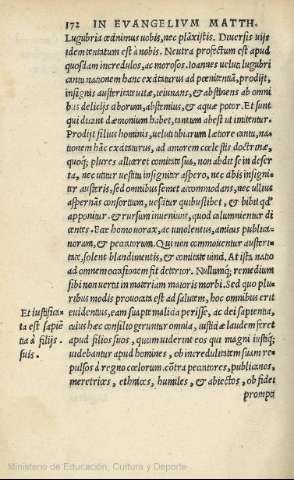 172 IN EVANGELIVM MATTH.
Lugubria cecinimus uobis, nec planxistis. Diuersis uijs
idem tentatum est à nobis. Neutra profectum est apud
quosdam incredulos, ac morosos. Ioannes uelut lugubri
cantu nationem hanc excitaturus ad pœnitentiã, prodijt,
insignis austeritate uitæ, ieiunans, & abstinens ab omni
bus delicijs ciborum, abstemius, & aquæ potor. Et sunt
qui dicant dæmonium habet, tantum abest ut imitentur.
Prodijt filius hominis, uelut tibiarum lætiore cantu, na
tionem hãc excitaturus, ad amorem cœlestis doctrinæ,
quoq; plures alliceret comitate sua, non abdit se in deser
ta, nec utitur uestitu insigniter aspero, nec cibis insigni
ter austeris, sed omnibus semet accommodans, nec ullius
aspernãs consortium, uescitur quibuslibet, & bibit qđ
apponitur. & rursum inueniunt, quod calumnientur di
centes. Ecce homo uorax, ac uinolentus, amicus publica
norum, & peccatorum. Qui non commouentur austeri
tate, solent blandimentis, & comitate uinci. At ista natio
ad omnem occasionem fit deterior. Nullumq; remedium
sibi non uerat in materiam maioris morbi. Sed quo plu
ribus modis prouocata est ad salutem, hoc omnibus erit
euidentius, eam suapte malicia perisse, ac dei sapientia,
cuius hæc consilio geruntur omnia, iusticiæ laudem feret
apud filios suos, quum uiderint eos qui magni iustiq;
uidebantur apud homines, ob incredulitatem suam re=
pulsos à regno cœlorum. cõtra peccatores, publicanos,
meretrices, ethnicos, humiles, & abiectos, ob fidei
prompti
Et iustifica=
ta est sapiē
tia à filijs
suis.
Ministerio de Educación, Cultura y Deporte